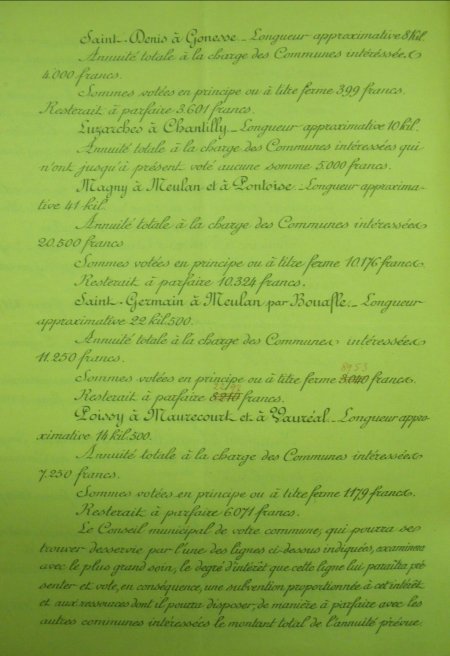 Saint-Denis à Gonesse_ Longueur approximative 8 kil.
Annuité totale à la charge des Communes intéressées
4.000 francs.
Sommes votées en principe ou à titre ferme 399 francs.
Resterait à parfaire 3.601 francs.
Luzarches à Chantilly_ Longueur approximative 10 kil.
Annuité totale à la charge des Communes intéressées qui
n'ont jusqu'à présent voté aucune somme 5.000 francs.
Magny à Meulan et à Pontoise_ Longueur approxima-
tive 41 kil.
Annuité totale à la charge des Communes intéressées
20.500 francs
Sommes votées en principe ou à titre ferme 10.176 francs.
Resterait à parfaire 10.324 francs.
Saint-Germain à Meulan par Bouafle_ Longueur
approximative 22 kil.500.
Annuité totale à la charge des Communes intéressées
11.250 francs.
Sommes votées en principe ou à titre ferme francs.
Resterait à parfaire francs.
Poissy à Maurecourt et à Vauréal_ Longueur appro-
ximative 14 kil.500.
Annuité totale à la charge des Communes intéressées
7.250 francs.
Sommes votées en principe ou à titre ferme 1179 francs.
Resterait à parfaire 6.071 francs.
Le Conseil municipal de votre commune, qui pourra se
trouver desservie par l'une des lignes ci-dessus indiquées, examinera
avec le plus grand soin, le degré d'intérêt que cette ligne lui paraîtra pré
senter et vote, en conséquence, une subvention proportionnée à cet intérêt
et aux ressources dont il pourra disposer, de manière à parfaire avec les
autres communes intéressées le montant total de l'annuité prévue.